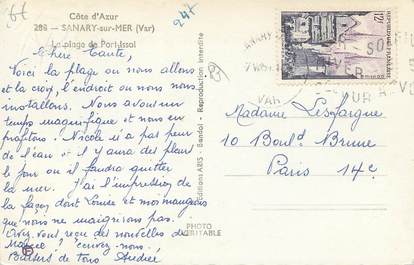 Côte d'Azur
286 - SANARY-sur-MER (Var)
La plage de Port-Issol
247
Chère Tante,
Voici la plage ou nous allons
et la croix, l'endroit ou nous nous
installons. Nous avons un
temps magnifique et nous en
profitons. Nicole n'a pas peur
de l'eau et il y aura des pleurs
le jour ou il faudra quitter
la mer. J'ai l'impression de
la façon dont Louise et nous mangeons
que nous ne maigrirons pas.
Avez vous reçu des nouvelles de
? écrivez nous.
Baisers de tous Andrée
Editions ARIS - Bandol - Reproduction interdite
PHOTO
VERITABLE
12F
SANARY
VAR
Madame Lesfargue
10 Boulᵈ Brune
Paris 14e